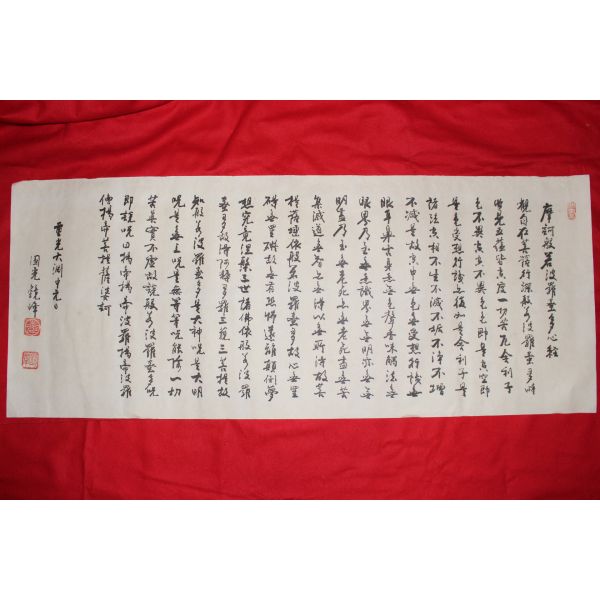 摩訶般若波羅蜜多心經
觀自在菩薩行深般若波羅蜜多時
照見五蘊皆空度一切苦厄舍利子
色不異空空不異色色即是空空即
是色受想行識亦復如是舍利子是
諸法空相不生不滅不垢不淨不增
不減是故空中無色無受想行識無
眼耳鼻舌身意無色聲香味觸法無
眼界乃至無意識界無無明亦無無
明盡乃至無老死亦無老死盡無苦
集滅道無智亦無得以無所得故菩
提薩埵依般若波羅蜜多故心無罣
礙無罣礙故無有恐怖遠離顛倒夢
想究竟涅槃三世諸佛依般若波羅
蜜多故得阿耨多羅三藐三菩提故
知般若波羅蜜多是大神呪是大明
呪是無上呪是無等等呪能除一切
苦真實不虛故說般若波羅蜜多呪
即說呪曰揭帝揭帝波羅揭帝波羅
僧揭帝菩提薩婆訶
光大淵
圓光鏡峰